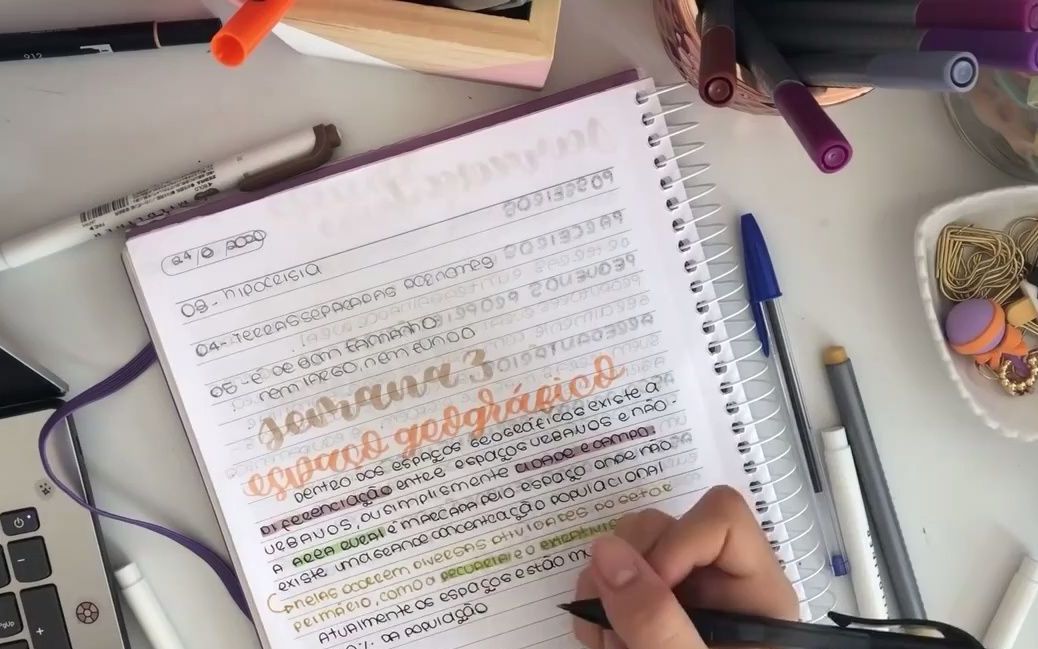 24/6/2020
03 - HIPOCRISIA
04 - TERRAS SEPARADAS POR NOMES
05 - É DE BOM TAMANHO
NEM LARGO, NEM FUNDO
semana 3
espaço geográfico
DENTRO DOS ESPAÇOS GEOGRÁFICOS EXISTE A
DIFERENCIAÇÃO ENTRE ESPAÇOS URBANOS E NÃO-
URBANOS, OU SIMPLISMENTE CIDADE E CAMPO.
A ÁREA RURAL É MARCADA PELO ESPAÇO ONDE NÃO
EXISTE UMA GRANDE CONCENTRAÇÃO POPULACIONAL
NELAS OCORREM DIVERSAS ATIVIDADES DO SETOR
PRIMÁRIO, COMO A PECUÁRIA E O
ATUALMENTE OS ESPAÇOS ESTÃO
% DA POPULAÇÃO
912
PgUp
+